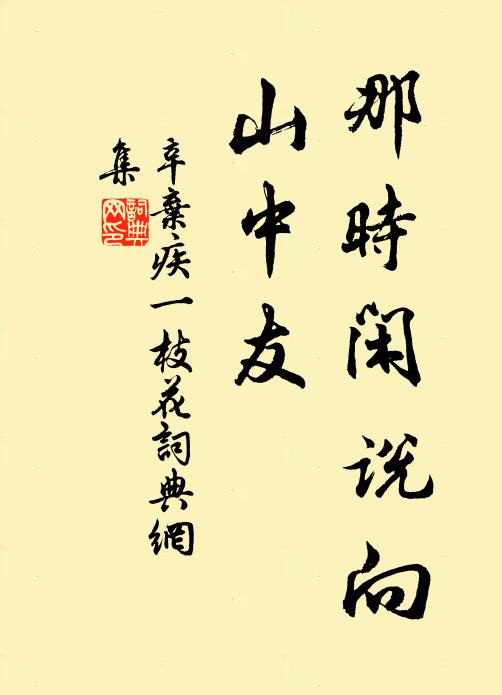 那時閑説向
山中友
辛棄疾一枝花詞典網
集
詞典
网印